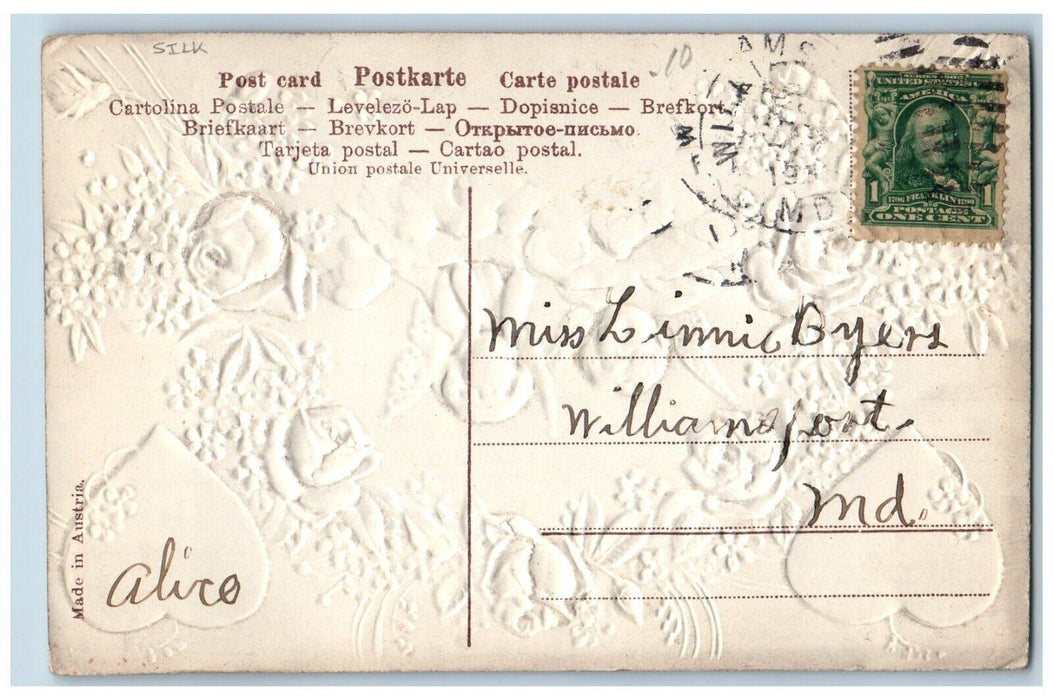 SILK
10
Post card Postkarte Carte postale
Cartolina Postale — Levelező-Lap — Dopisnice — Brefkort
Briefkaart — Brevkort — Открытое-письмо.
Tarjeta postal — Cartao postal.
Union postale Universelle.
WILLIAMS
MD
SERIES 1902
UNITED STATES OF
AMERICA
1 1706 FRANKLIN 1790 1
POSTAGE
ONE CENT
Miss Linnie Byers
Williamsport.
Md.
Made in Austria.
Alice